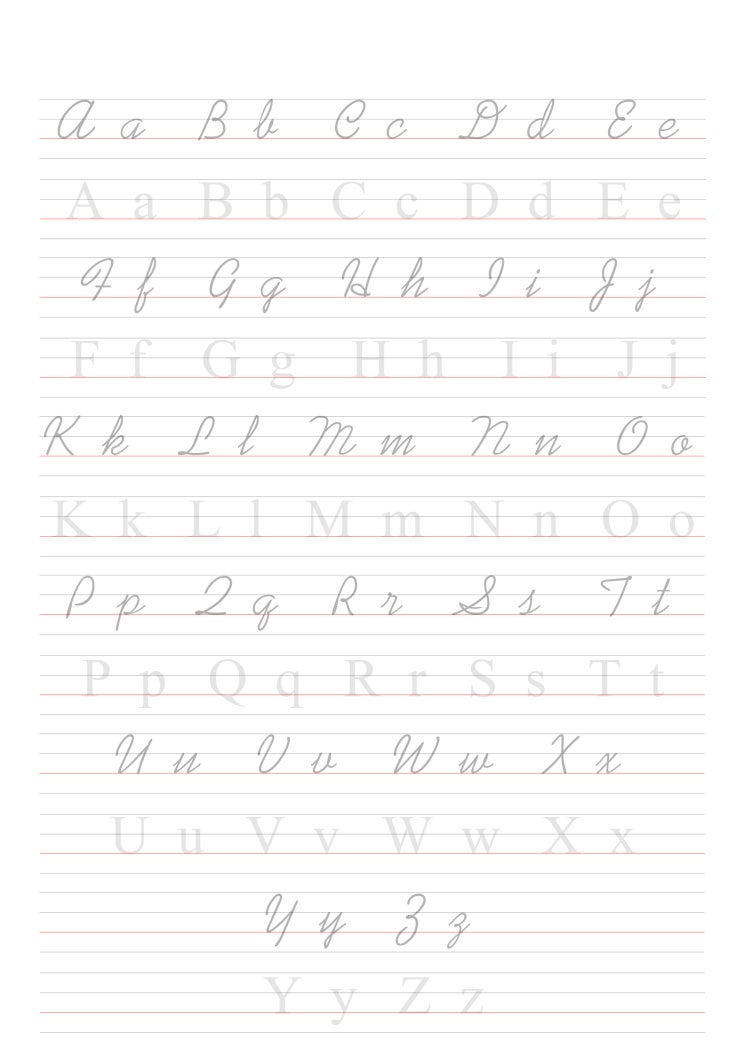 A a B b C c D d E e
A a B b C c D d E e
F f G g H h I i J j
F f G g H h I i J j
K k L l M m N n O o
K k L l M m N n O o
P p Q q R r S s T t
P p Q q R r S s T t
U u V v W w X x
U u V v W w X x
Y y Z z
Y y Z z